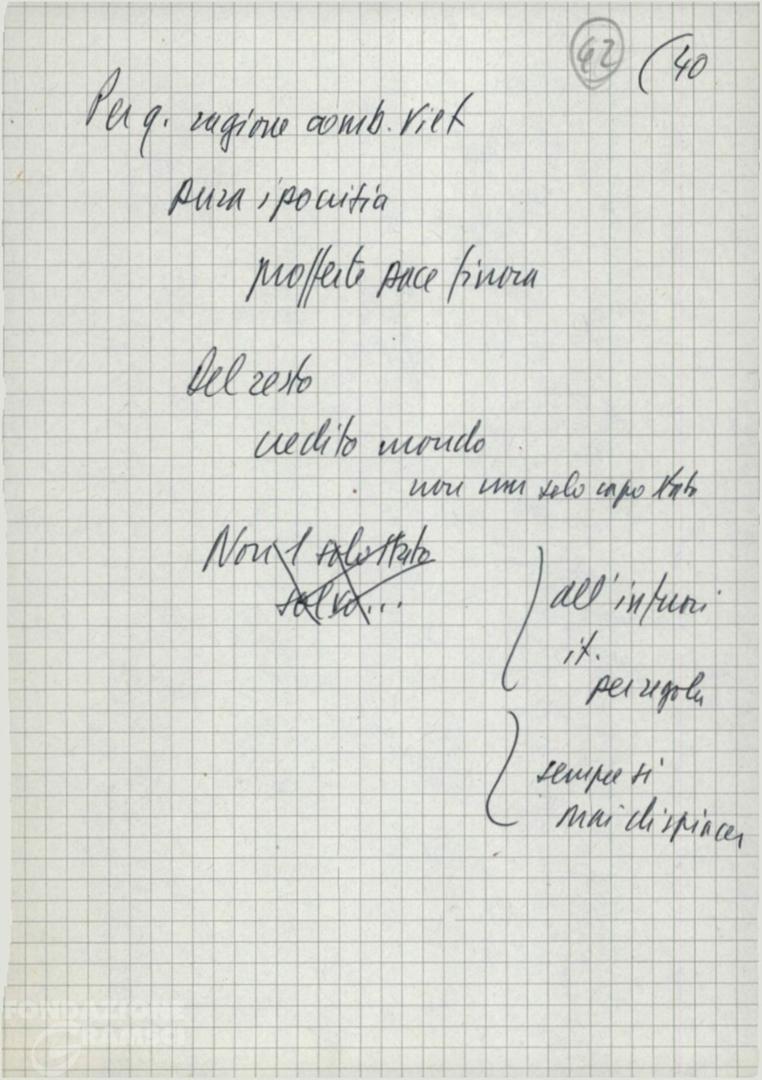 42 (40
Per q. ragione comb. Viet
pura ipocrisia
profferte pace finora
Del resto
credito mondo
non un solo capo Stato
Non 1 solo Stato
salvo...
all'infuori
it.
per regola
sempre sì
mai dispiacer
FONDAZIONE
GRAMSCI